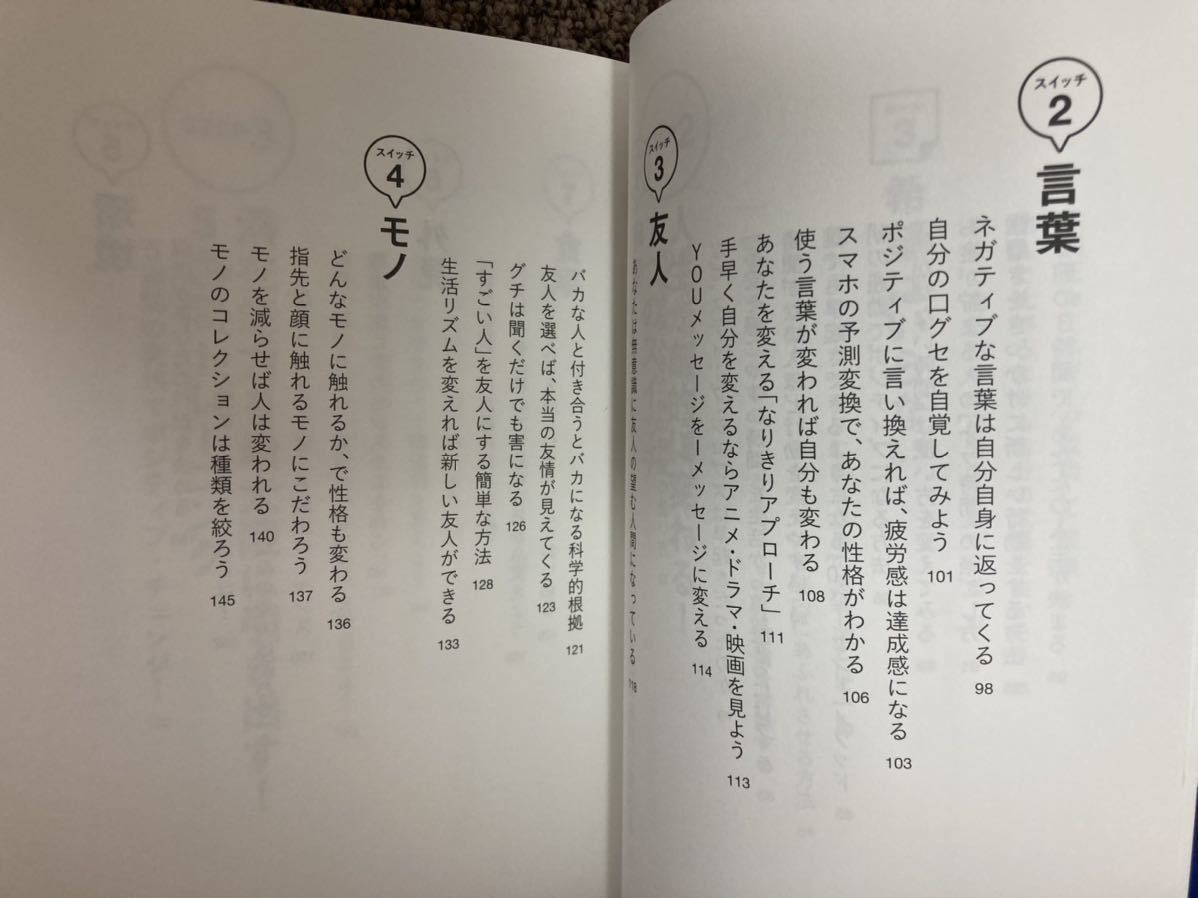 スイッチ
2
言葉
ネガティブな言葉は自分自身に返ってくる 98
自分の口グセを自覚してみよう 101
ポジティブに言い換えれば、疲労感は達成感になる 103
スマホの予測変換で、あなたの性格がわかる 106
使う言葉が変われば自分も変わる 108
あなたを変える「なりきりアプローチ」 111
手早く自分を変えるならアニメ・ドラマ・映画を見よう 113
YOUメッセージをーメッセージに変える 114
スイッチ
3
友人
あなたは無意識に友人の望む人間になっている 118
バカな人と付き合うとバカになる科学的根拠 121
友人を選べば、本当の友情が見えてくる 123
グチは聞くだけでも害になる 126
「すごい人」を友人にする簡単な方法 128
生活リズムを変えれば新しい友人ができる 133
スイッチ
4
モノ
どんなモノに触れるか、で性格も変わる 136
指先と顔に触れるモノにこだわろう 137
モノを減らせば人は変われる 140
モノのコレクションは種類を絞ろう 145